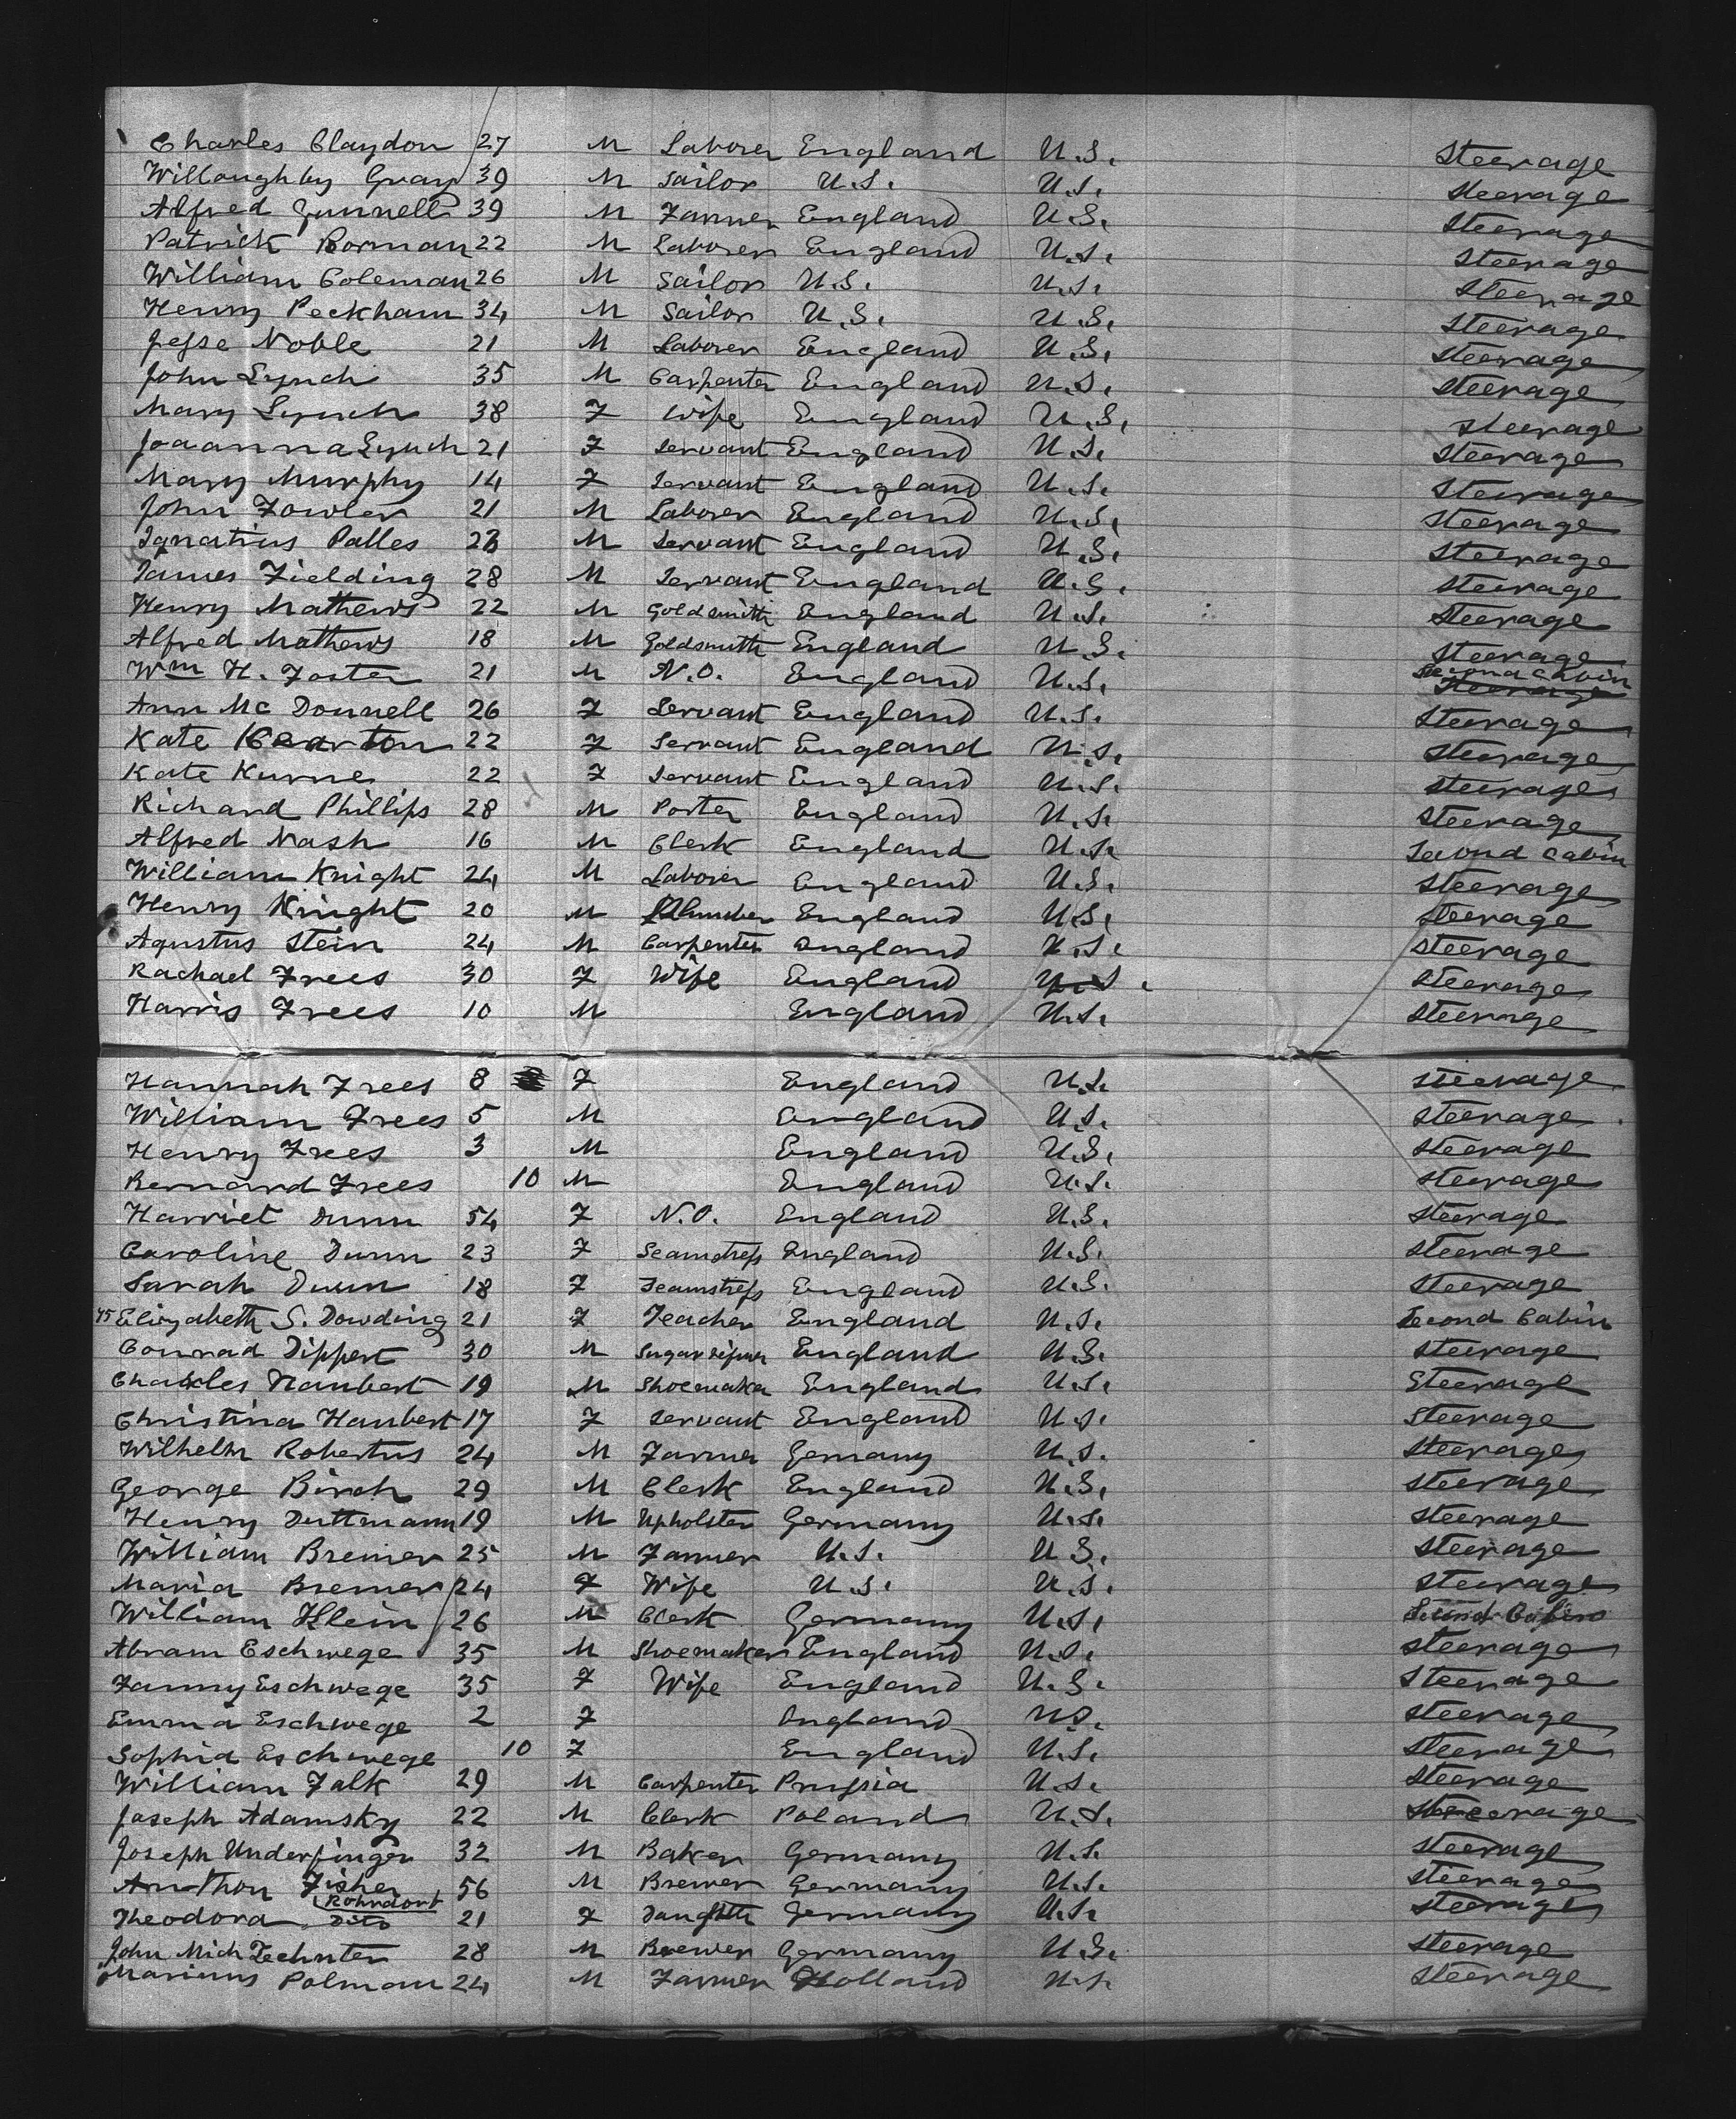 Charles Claydon 27 M Laborer England U.S. Steerage
Willoughby Gray 39 M Sailor U.S. U.S. Steerage
Alfred Gunnell 39 M Farmer England U.S. Steerage
Patrick Borman 22 M Laborer England U.S. Steerage
William Coleman 26 M Sailor U.S. U.S. Steerage
Henry Peckham 34 M Sailor U.S. U.S. Steerage
Jesse Noble 21 M Laborer England U.S. Steerage
John Lynch 35 M Carpenter England U.S. Steerage
Mary Lynch 38 F Wife England U.S. Steerage
Joaanna Lynch 21 F Servant England U.S. Steerage
Mary Murphy 14 F Servant England U.S. Steerage
John Fowler 21 M Laborer England U.S. Steerage
Ignatius Palles 23 M Servant England U.S. Steerage
James Fielding 28 M Servant England U.S. Steerage
Henry Mathews 22 M Goldsmith England U.S. Steerage
Alfred Mathews 18 M Goldsmith England U.S. Steerage
Wm H. Foster 21 M N.O. England U.S. Second Cabin Steerage
Ann Mc Donnell 26 F Servant England U.S. Steerage
Kate 22 F Servant England U.S. Steerage
Kate Kurne 22 F Servant England U.S. Steerage
Richard Phillips 28 M Porter England U.S. Steerage
Alfred Nash 16 M Clerk England U.S. Second Cabin
William Knight 24 M Laborer England U.S. Steerage
Henry Knight 20 M Plumber England U.S. Steerage
Agustus Stein 24 M Carpenter England U.S. Steerage
Rachael Frees 30 F Wife England U.S. Steerage
Harris Frees 10 M England U.S. Steerage
Hannah Frees 8 F England U.S. Steerage
William Frees 5 M England U.S. Steerage
Henry Frees 3 M England U.S. Steerage
Bernard Frees 10 M England U.S. Steerage
Harriet Dunn 54 F N.O. England U.S. Steerage
Caroline Dunn 23 F Seamstress England U.S. Steerage
Sarah Dunn 18 F Seamstress England U.S. Steerage
45 Elizabeth S. Dowding 21 F Teacher England U.S. Second Cabin
Conrad Dippert 30 M Sugar refiner England U.S. Steerage
Charles Haubert 19 M Shoemaker England U.S. Steerage
Christina Haubert 17 F Servant England U.S. Steerage
Wilhelm Robertus 24 M Farmer Gemany U.S. Steerage
George Birch 29 M Clerk England U.S. Steerage
Henry Duttmann 19 M Upholster Germany U.S. Steerage
William Bremer 25 M Farmer U.S. U.S. Steerage
Maria Bremer 24 F Wife U.S. U.S. Steerage
William Klein 26 M Clerk Germany U.S. Second Cabin
Abram Eschwege 35 M Shoemaker England U.S. Steerage
Fanny Eschwege 35 F Wife England U.S. Steerage
Emma Eschwege 2 F England U.S. Steerage
Sophia Eschwege 10 F England U.S. Steerage
William Falk 29 M Carpenter Prussia U.S. Steerage
Joseph Adamsky 22 M Clerk Poland U.S. Steerage
Joseph Underfinger 32 M Baker Germany U.S. Steerage
Anthon Fisher 56 M Brewer Germany U.S. Steerage
Rohrdort
Theodora Dito 21 F Daughter Germany U.S. Steerage
John Mich Zechnter 28 M Brewer Germany U.S. Steerage
Marinus Polman 24 M Farmer Holland U.S. Steerage